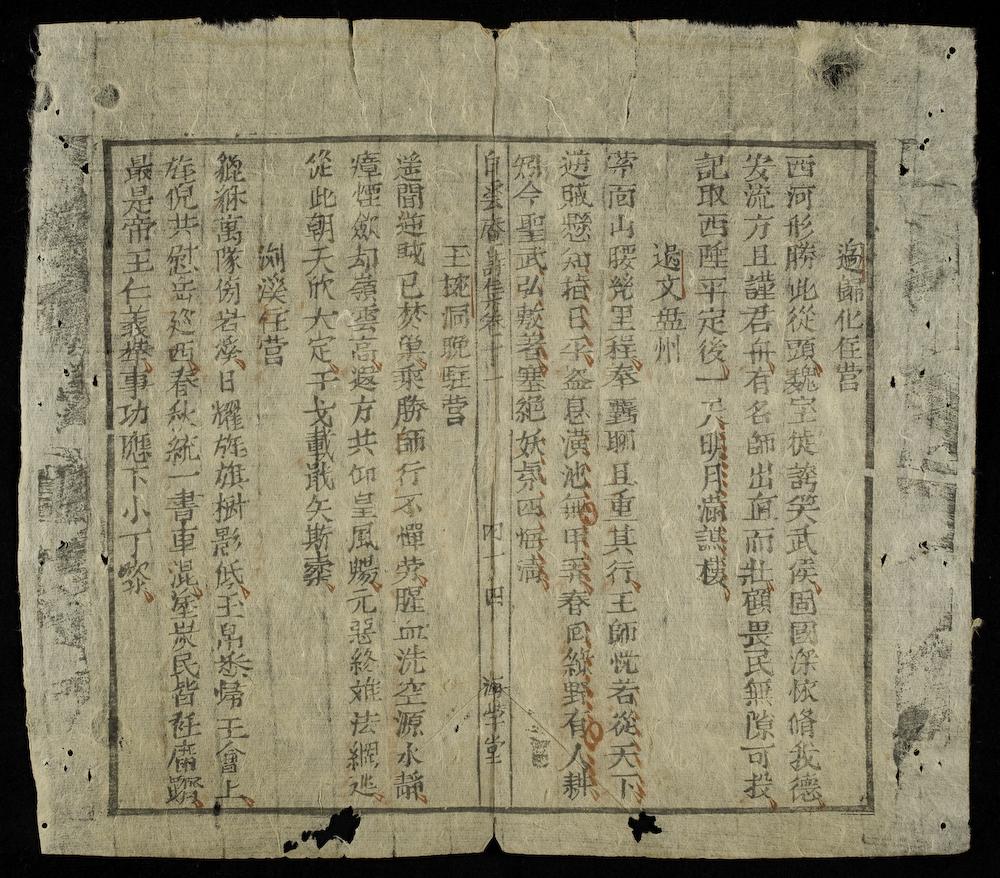 過歸化住營
西河形勝此從頭魏室徒誇笑武侯固國深依脩我德
安流方且謹君舟有名師出直而壯顧畏民無隙可投
記取西陲平定後一天明月滿譙樓
過文盤州
帶面山腰幾里程奉觴聊且重其行王師恍若從天下
逆賊懸知指日平盜息潢池無甲弄春回綠野有人耕
矧今聖武弘敷著塞絕妖氛四海清
白雲庵詩佳集卷之十一 四十四 海學堂
玉椀洞晚駐營
遙聞逆賊已焚巢乘勝師行不憚勞腥血洗空源水靜
瘴煙斂却嶺雲高遐方共仰皇風暢元惡終難法網逃
從此朝天欣大定干戈載戢矢斯櫜
浰溪住營
貔貅萬隊傍岩溪日耀旌旗樹影低玉帛來歸王會上
旄倪共慰岳巡西春秋統一書車混塗炭民皆衽席躋
最是帝王仁義舉事功應下小丁黎